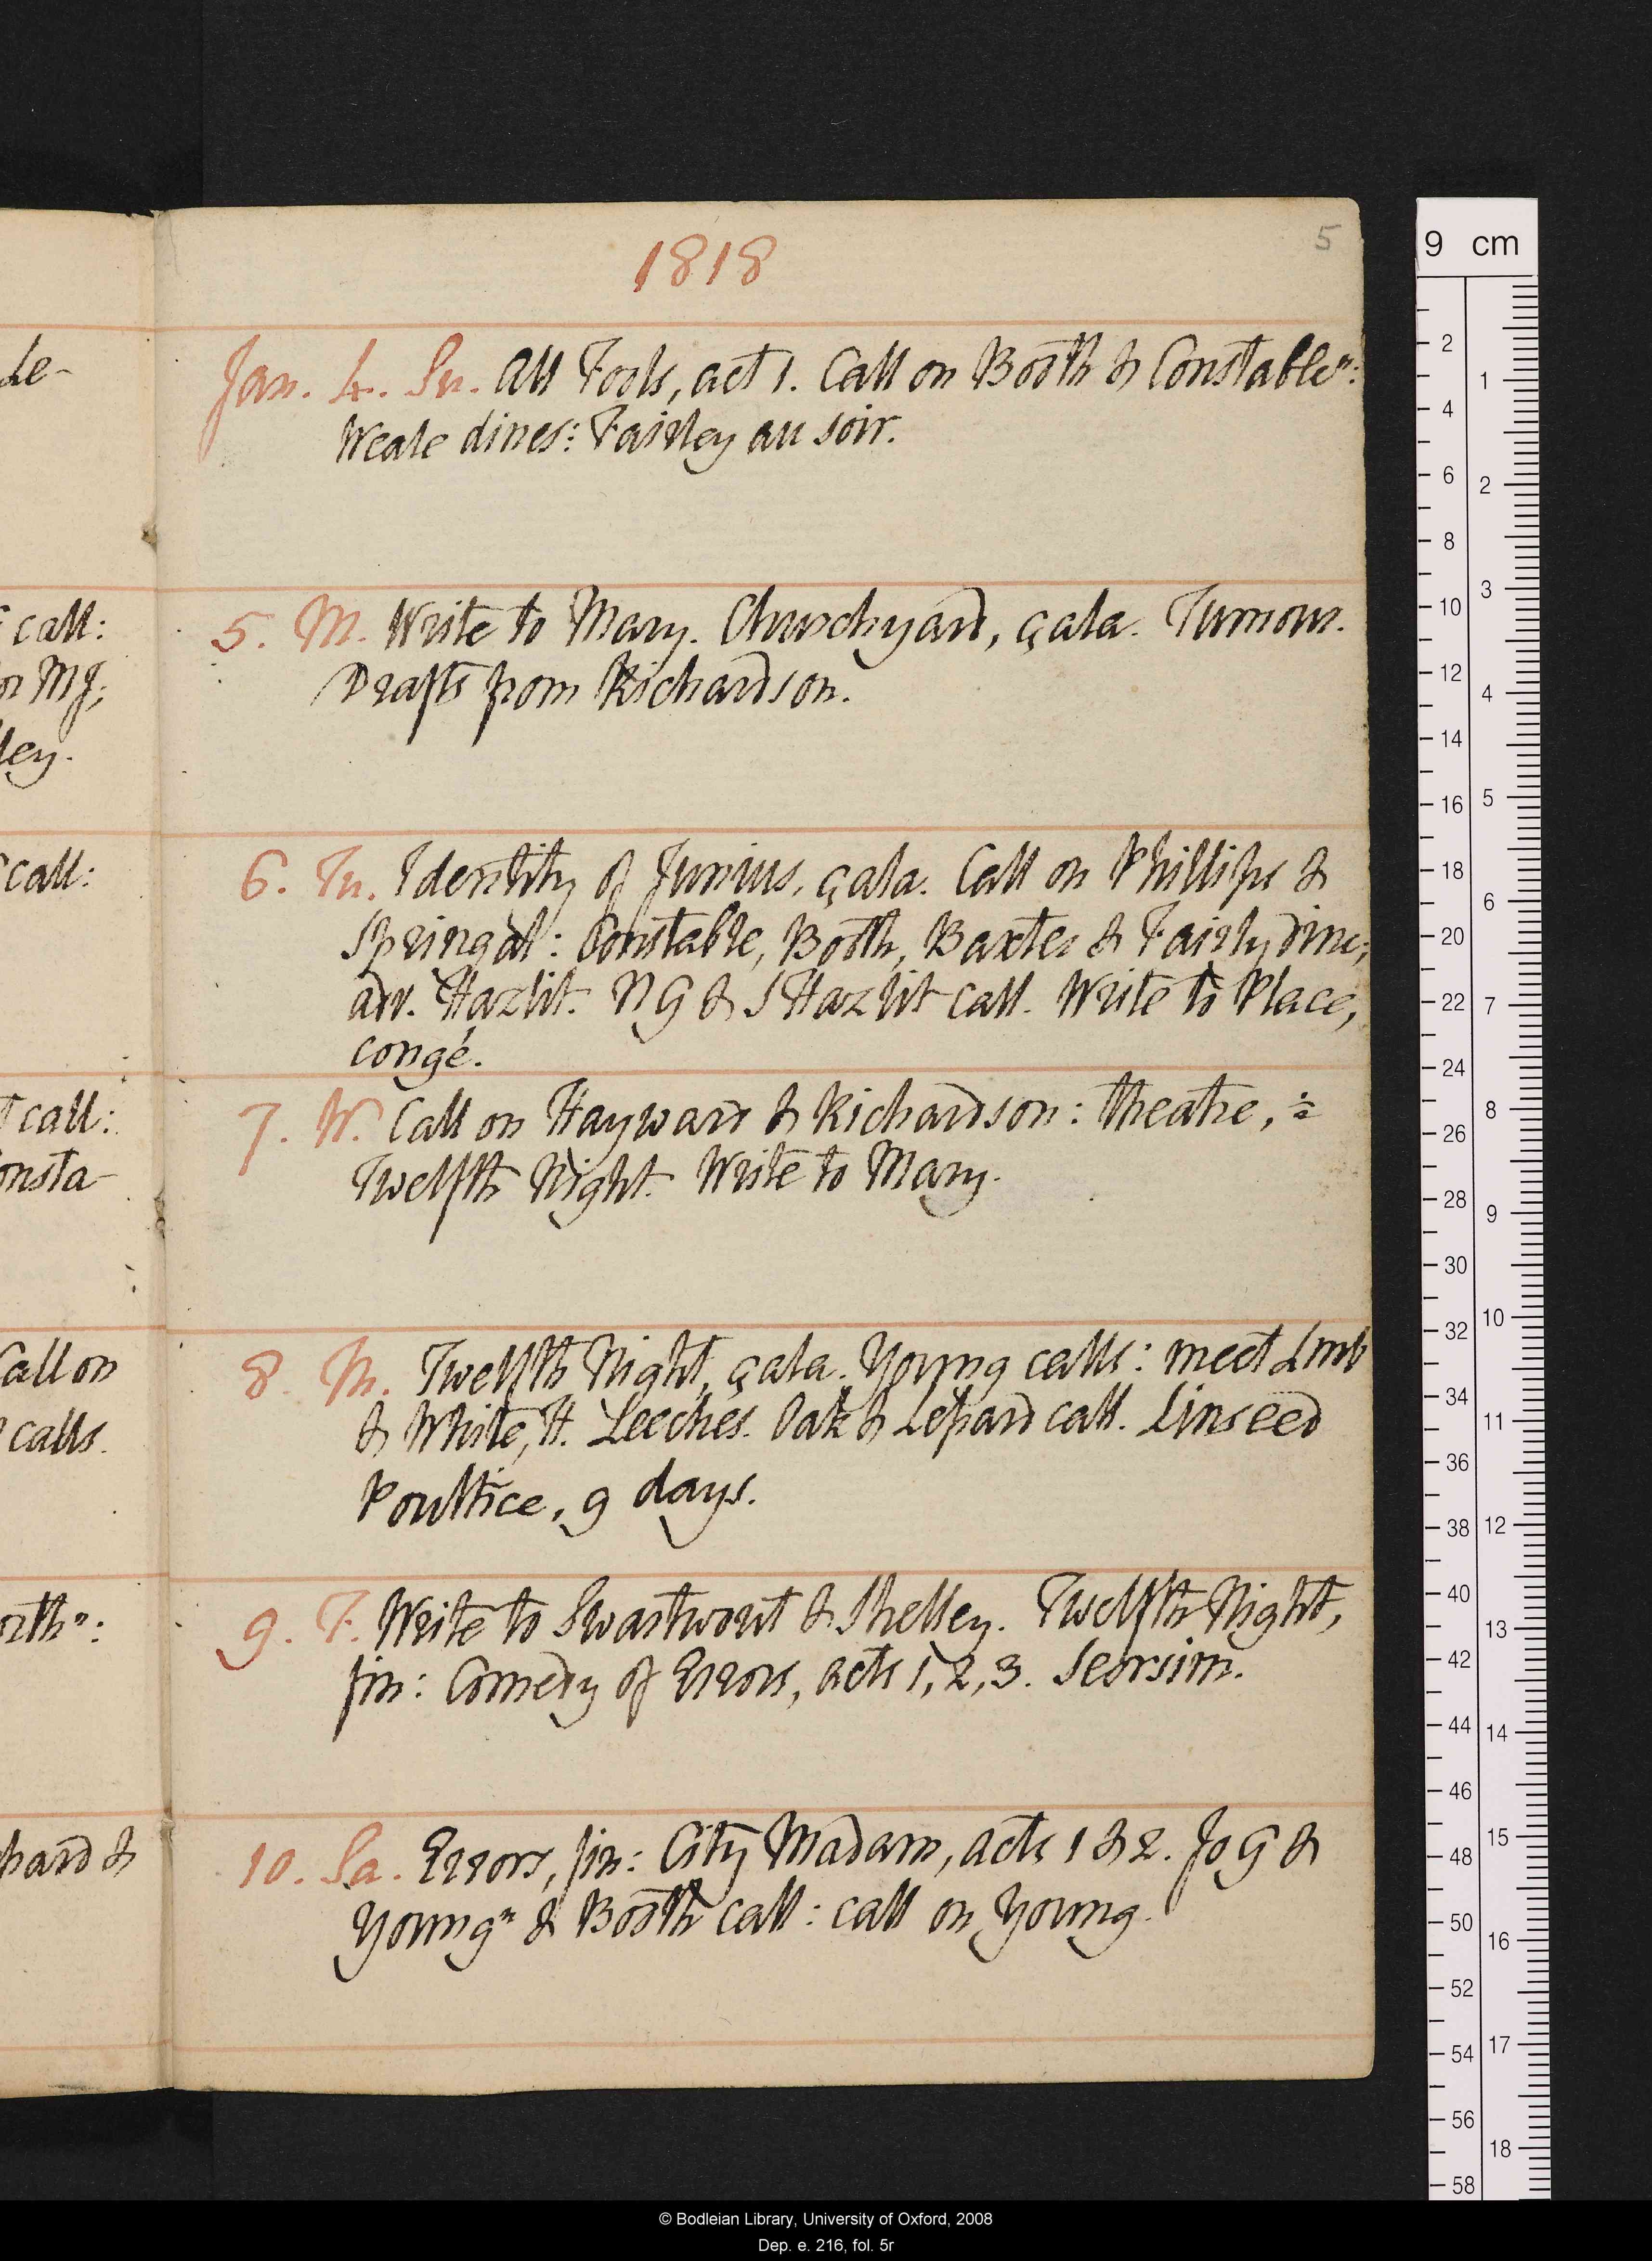 1818
5
Jan. 4. Su. All Fools, act 1. Call on Booth & Constable n:
Weale dines: Fairley au soir.
5. M. Write to Mary. Churchyard, çala. Tumour.
Drafts from Richardson.
6. Tu. Identity of Junius, çala. Call on Phillips &
Springal: Constable, Booth, Baxter & Fairly dine;
adv. Hazlit. N G & J Hazlit call. Write to Place,
congé.
7. W. Call on Hayward & Richardson: theatre,
Twelfth Night. Write to Mary.
8. Th. Twelfth Night, çala. Young calls: meet Lmb
& White, H. Leeches. Oak & Lepard call. Linseed
Poultice, 9 days.
9. F. Write to Swartwout & Shelley. Twelfth Night,
fin: Comedy of Errors, acts 1, 2, 3. Seorsim.
10. Sa. Errors, fin: City Madam, acts 1 & 2. Jo G &
Young n & Booth call: call on Young.
Le-
call:
on MJ;
ley.
call:
call:
onsta-
Call on
calls.
orth n:
pard &
9 cm
2 4 6 8 10 12 14 16 18 20 22 24 26 28 30 32 34 36 38 40 42 44 46 48 50 52 54 56 58
1 2 3 4 5 6 7 8 9 10 11 12 13 14 15 16 17 18
© Bodleian Library, University of Oxford, 2008
Dep. e. 216, fol. 5r